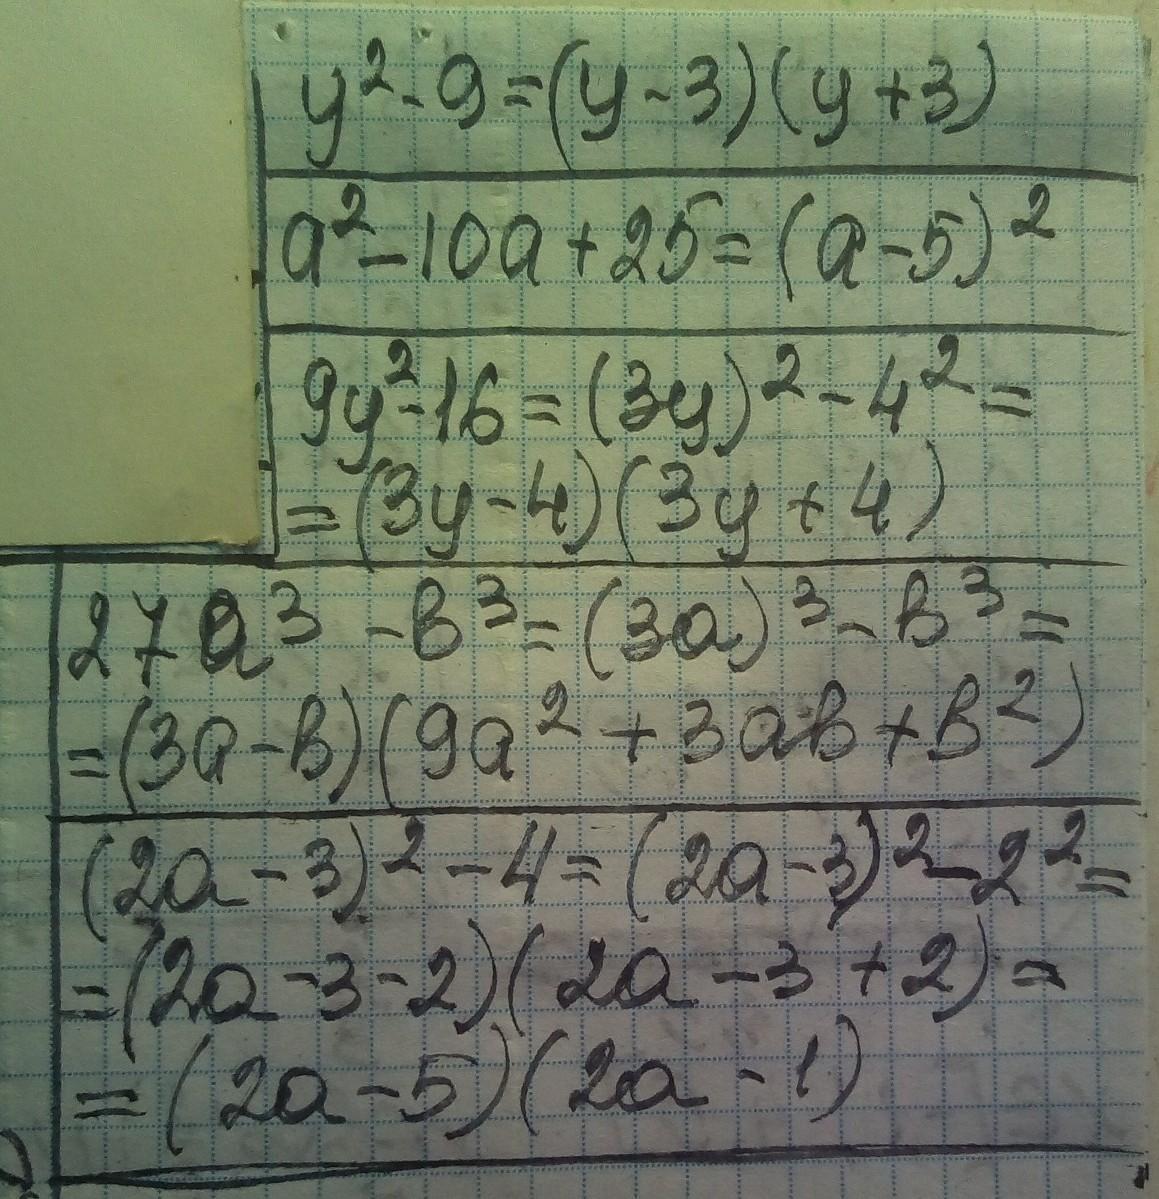 y² - 9 = (y - 3)(y + 3)
a² - 10a + 25 = (a - 5)²
9y² - 16 = (3y)² - 4² =
= (3y - 4)(3y + 4)
27a³ - в³ = (3a)³ - в³ =
= (3a - в)(9a² + 3aв + в²)
(2a - 3)² - 4 = (2a - 3)² - 2² =
= (2a - 3 - 2)(2a - 3 + 2) =
= (2a - 5)(2a - 1)